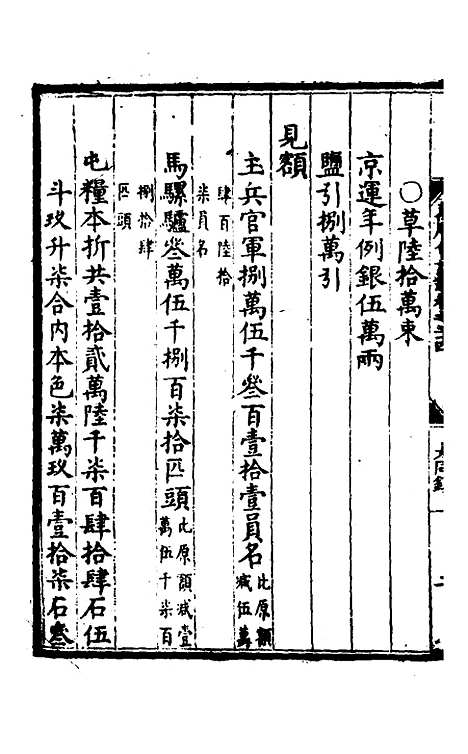 ○草陸拾萬束
京運年例銀伍萬兩
鹽引捌萬引
見額
主兵官軍捌萬伍千叄百壹拾壹員名比原額減伍萬
肆百陸拾柒員名
馬騾驢叄萬伍千捌百柒拾匹頭比原額減壹萬伍千柒百
捌拾肆匹頭
屯糧本折共壹拾貳萬陸千柒百肆拾肆石伍
斗玖升柒合內本色柒萬玖百壹拾柒石叄